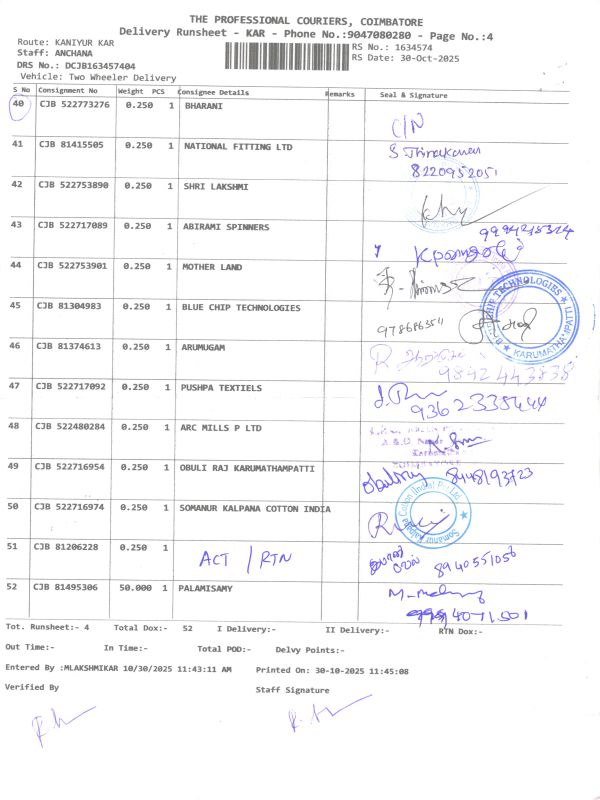 THE PROFESSIONAL COURIERS, COIMBATORE
Delivery Runsheet - KAR - Phone No.:9047080280 - Page No.:4
Route: KANIYUR KAR
Staff: ANCHANA
DRS No.: DCJB163457404
Vehicle: Two Wheeler Delivery
RS No.: 1634574
RS Date: 30-Oct-2025
S No Consignment No Weight PCS Consignee Details Remarks Seal & Signature
40 CJB 522773276 0.250 1 BHARANI C/N
41 CJB 81415505 0.250 1 NATIONAL FITTING LTD
8220952051
42 CJB 522753890 0.250 1 SHRI LAKSHMI
43 CJB 522717089 0.250 1 ABIRAMI SPINNERS
44 CJB 522753901 0.250 1 MOTHER LAND
45 CJB 81304983 0.250 1 BLUE CHIP TECHNOLOGIES
BLUE CHIP TECHNOLOGIES
KARUMATHAMPATTI
46 CJB 81374613 0.250 1 ARUMUGAM
9842443838
47 CJB 522717092 0.250 1 PUSHPA TEXTIELS
48 CJB 522480284 0.250 1 ARC MILLS P LTD
49 CJB 522716954 0.250 1 OBULI RAJ KARUMATHAMPATTI
Obuliraj 8448193723
50 CJB 522716974 0.250 1 SOMANUR KALPANA COTTON INDIA
51 CJB 81206228 0.250 1 ACT / RTN
8940551056
52 CJB 81495306 50.000 1 PALAMISAMY
Tot. Runsheet:- 4 Total Dox:- 52 I Delivery:- II Delivery:- RTN Dox:-
Out Time:- In Time:- Total POD:- Delvy Points:-
Entered By :MLAKSHMIKAR 10/30/2025 11:43:11 AM Printed On: 30-10-2025 11:45:08
Verified By Staff Signature